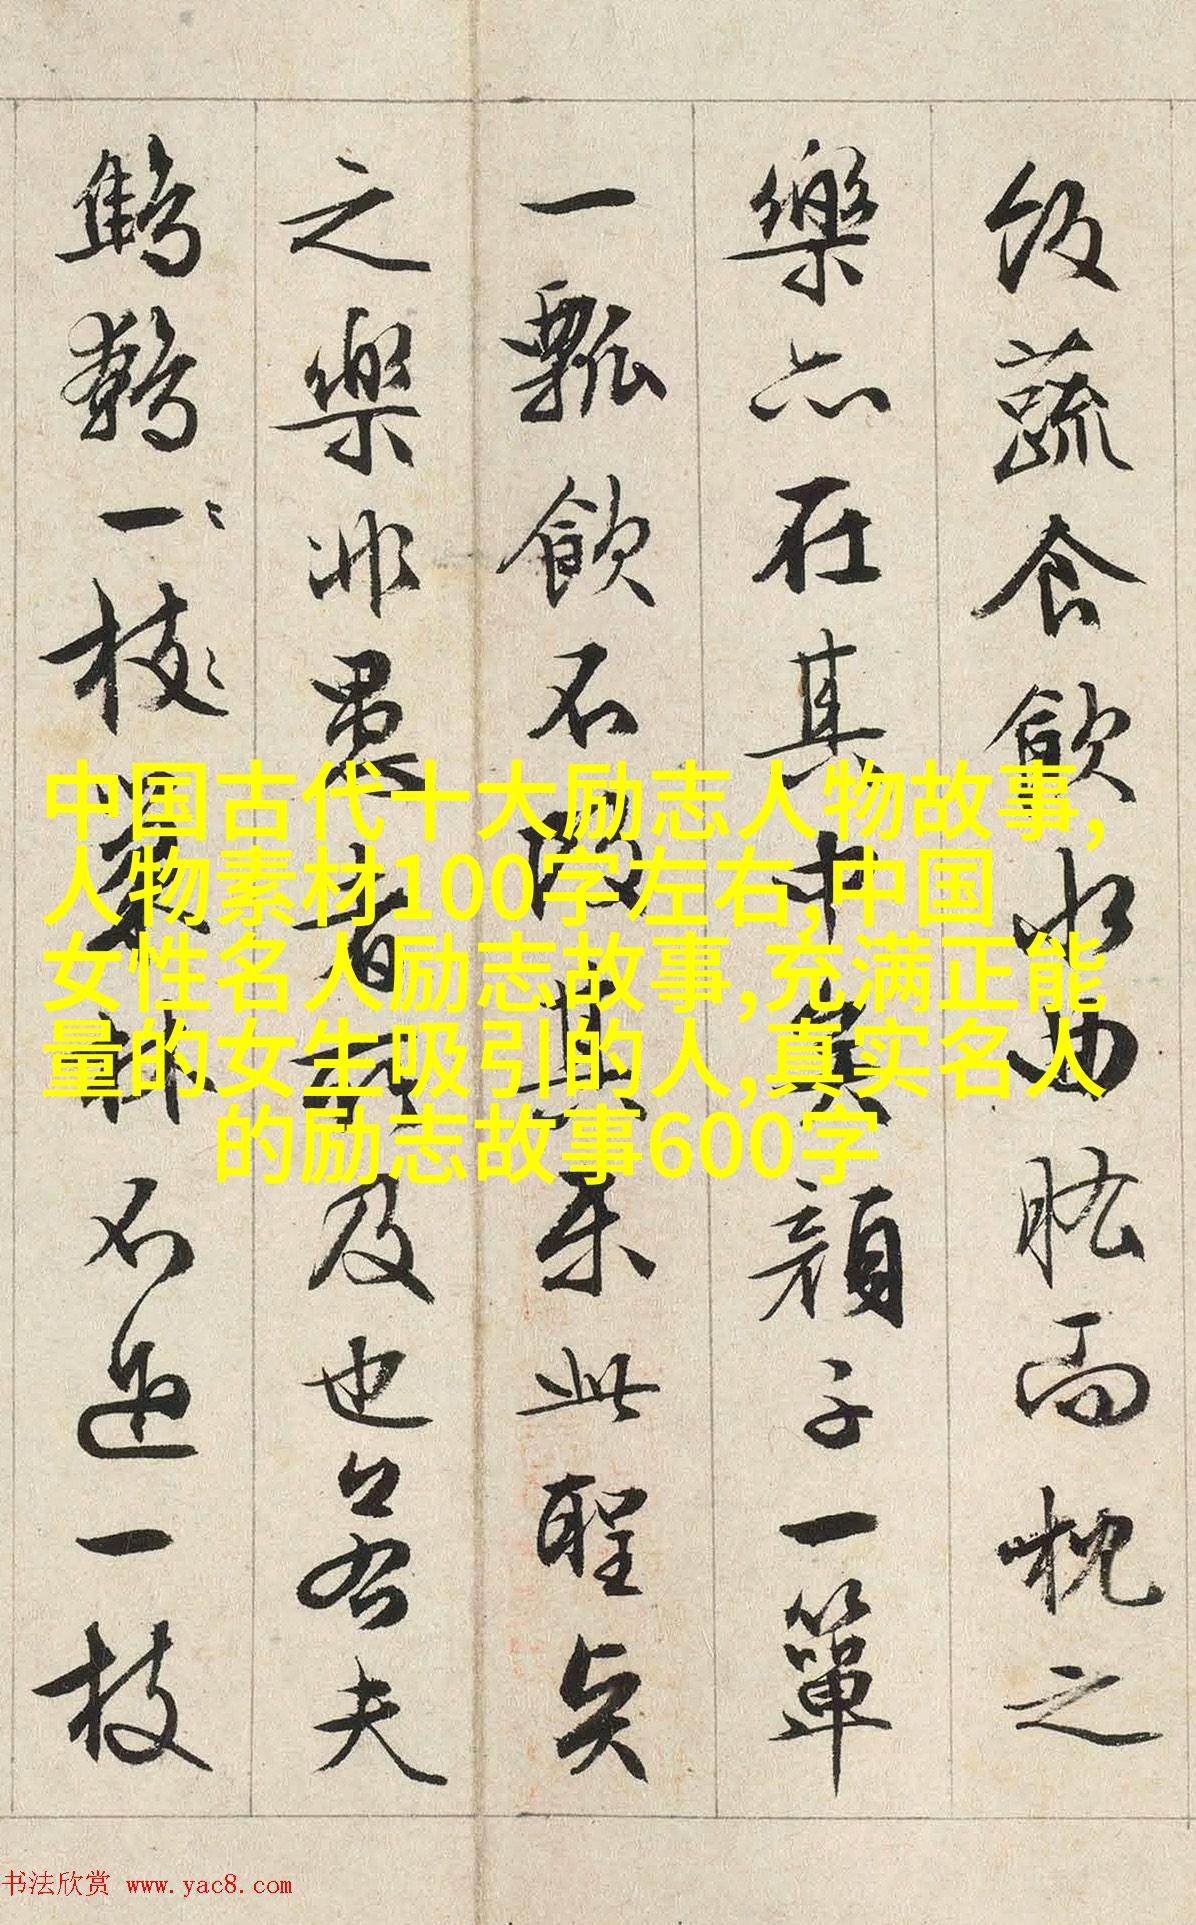 飯蔬食飲水曲肱而枕之
樂亦在其中矣顏子一簞
一瓢飲不改其樂此聖賢
之樂非愚者所及也若夫
鷦鷯一枝巢林不過一枝
中国古代十大励志人物故事,
人物素材100字左右,中国
女性名人励志故事,充满正能
量的女生吸引的人,真实名人
的励志故事600字
书法欣赏 www.yac8.com